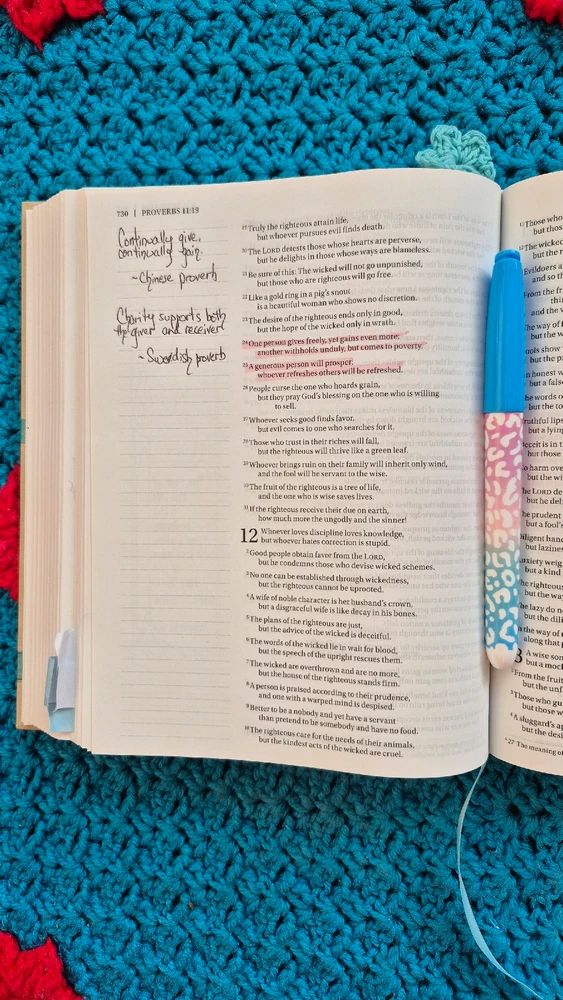 730 | PROVERBS 11:19
Continually give,
continually gain.
~ Chinese proverb
Charity supports both
the giver and receiver
~ Swedish proverb
19 Truly the righteous attain life,
but whoever pursues evil finds death.
20 The LORD detests those whose hearts are perverse,
but he delights in those whose ways are blameless.
21 Be sure of this: The wicked will not go unpunished,
but those who are righteous will go free.
22 Like a gold ring in a pig's snout
is a beautiful woman who shows no discretion.
23 The desire of the righteous ends only in good,
but the hope of the wicked only in wrath.
24 One person gives freely, yet gains even more;
another withholds unduly, but comes to poverty.
25 A generous person will prosper;
whoever refreshes others will be refreshed.
26 People curse the one who hoards grain,
but they pray God's blessing on the one who is willing
to sell.
27 Whoever seeks good finds favor,
but evil comes to one who searches for it.
28 Those who trust in their riches will fall,
but the righteous will thrive like a green leaf.
29 Whoever brings ruin on their family will inherit only wind,
and the fool will be servant to the wise.
30 The fruit of the righteous is a tree of life,
and the one who is wise saves lives.
31 If the righteous receive their due on earth,
how much more the ungodly and the sinner!
12 Whoever loves discipline loves knowledge,
but whoever hates correction is stupid.
2 Good people obtain favor from the LORD,
but he condemns those who devise wicked schemes.
3 No one can be established through wickedness,
but the righteous cannot be uprooted.
4 A wife of noble character is her husband's crown,
but a disgraceful wife is like decay in his bones.
5 The plans of the righteous are just,
but the advice of the wicked is deceitful.
6 The words of the wicked lie in wait for blood,
but the speech of the upright rescues them.
7 The wicked are overthrown and are no more,
but the house of the righteous stands firm.
8 A person is praised according to their prudence,
and one with a warped mind is despised.
9 Better to be a nobody and yet have a servant
than pretend to be somebody and have no food.
10 The righteous care for the needs of their animals,
but the kindest acts of the wicked are cruel.
11 Those who
but those
12 The wicked
but the r
Evildoers a
and so th
From the fr
thin
and the v
The way of
but the w
ools show
but the p
n honest w
but a false
he words o
but the to
ruthful lips
but a lying
Deceit is in t
but those
o harm over
but the wi
he LORD de
but he del
he prudent
but a fool's
iligent hand
but lazines
nxiety weig
but a kind
he righteous
but the way
he lazy do n
but the dili
n the way of
along that p
3 A wise so
but a mock
2 From the fruit
but the unf
3 Those who gu
but those w
4 A sluggard's ap
but the desi
a 27 The meaning of